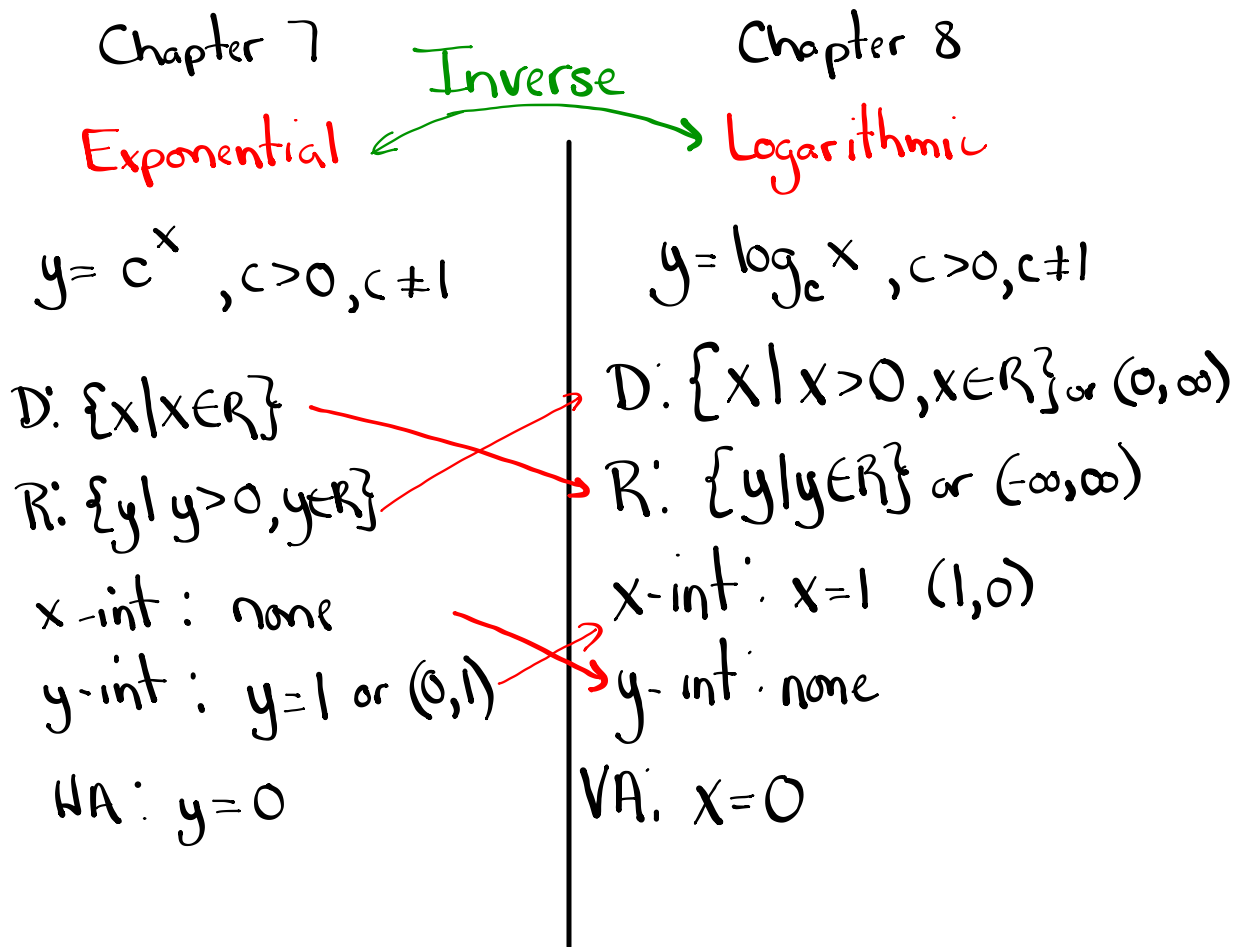 Chapter 7
Exponential
y = c^x , c>0, c≠1
D: {x|x∈R}
R: {y| y>0, y∈R}
x-int : none
y-int : y=1 or (0,1)
HA: y=0
Inverse
Chapter 8
Logarithmic
y = log_c x , c>0, c≠1
D: {x | x>0, x∈R} or (0, ∞)
R: {y|y∈R} or (-∞, ∞)
x-int: x=1 (1,0)
y-int: none
VA: x=0